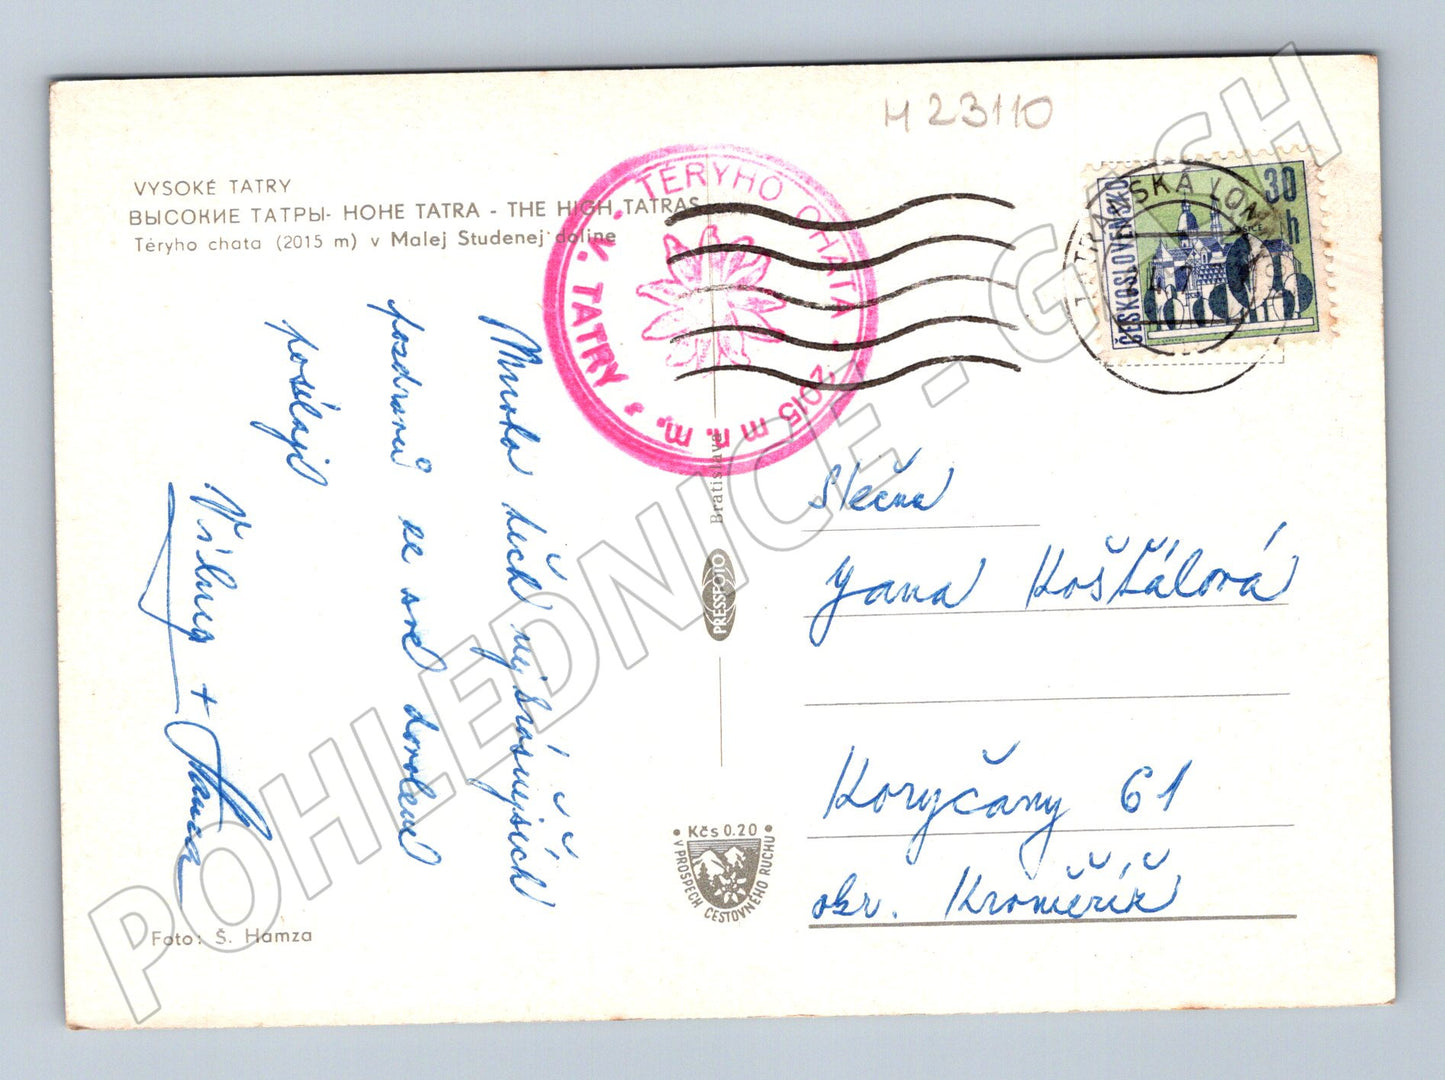 H 23110
VYSOKÉ TATRY
ВЫСОКИЕ ТАТРЫ - HOHE TATRA - THE HIGH TATRAS
Téryho chata (2015 m) v Malej Studenej doline
V. TATRY * TÉRYHO CHATA · 2015 m n. m.
TATRANSKÁ LOMNICA
ČESKOSLOVENSKO
30 h
Mnoho těch nejkrásnějších
pozdravů ze své dovolené
posílají
Vilma + Hanca
Bratislava
PRESSFOTO
Slečna
Jana Košťálová
Koryčany 61
okr. Kroměříž
• Kčs 0.20 •
V PROSPECH CESTOVNÉHO RUCHU
Foto: Š. Hamza
POHLEDNICE - GASH